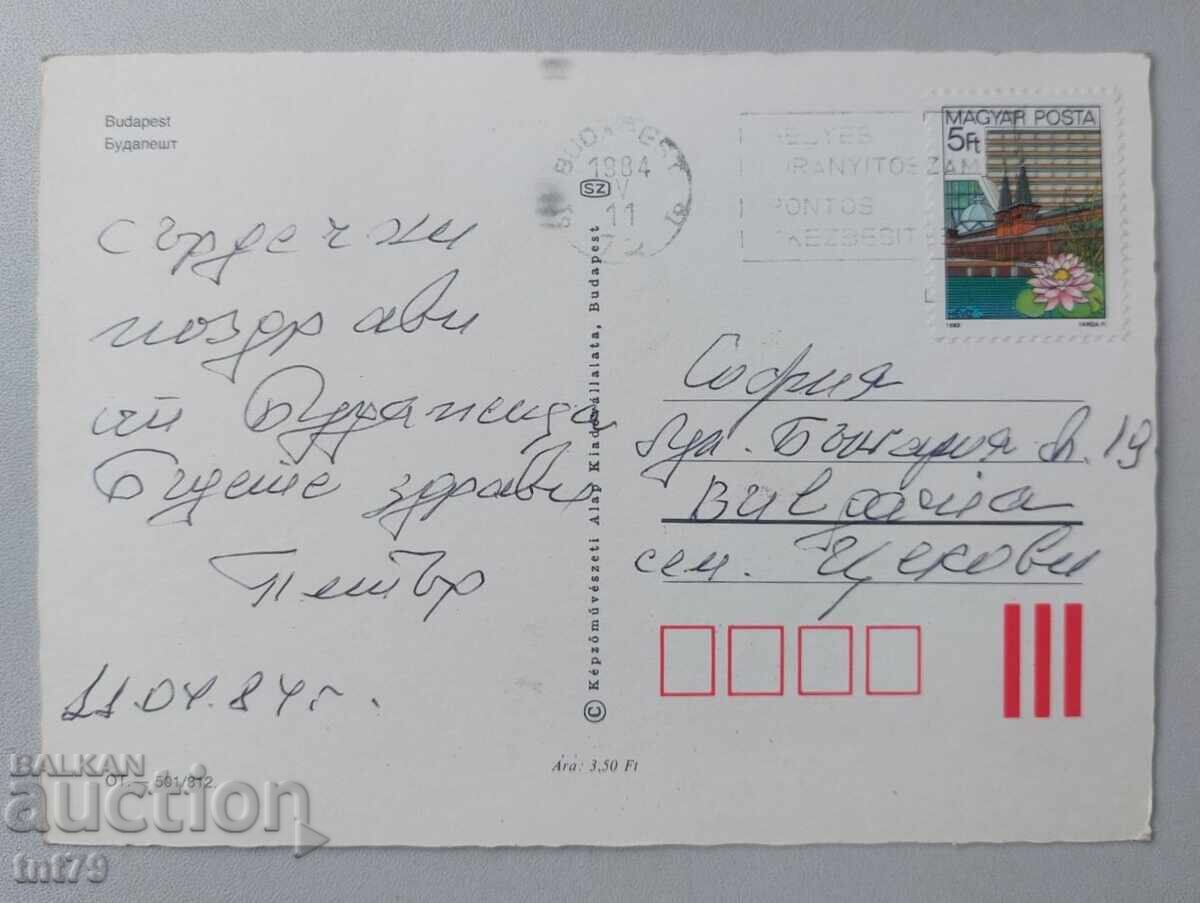 Budapest
Будапешт
сърдечни
поздрави
от Будапеща
Бъдете здрави
Петър
11.04.84 г.
ОТ. — 561/812.
BUDAPEST
1984 IV 11
HELYES
IRÁNYÍTÓSZÁM
PONTOS
KÉZBESÍTÉS
MAGYAR POSTA
5Ft
1983
VARGA P.
SZ
© Képzőművészeti Alap Kiadóvállalata, Budapest
София
бул. България бл. 19
Bulgaria
сем. Цекови
Ára: 3,50 Ft
BALKAN
auction
tnt79